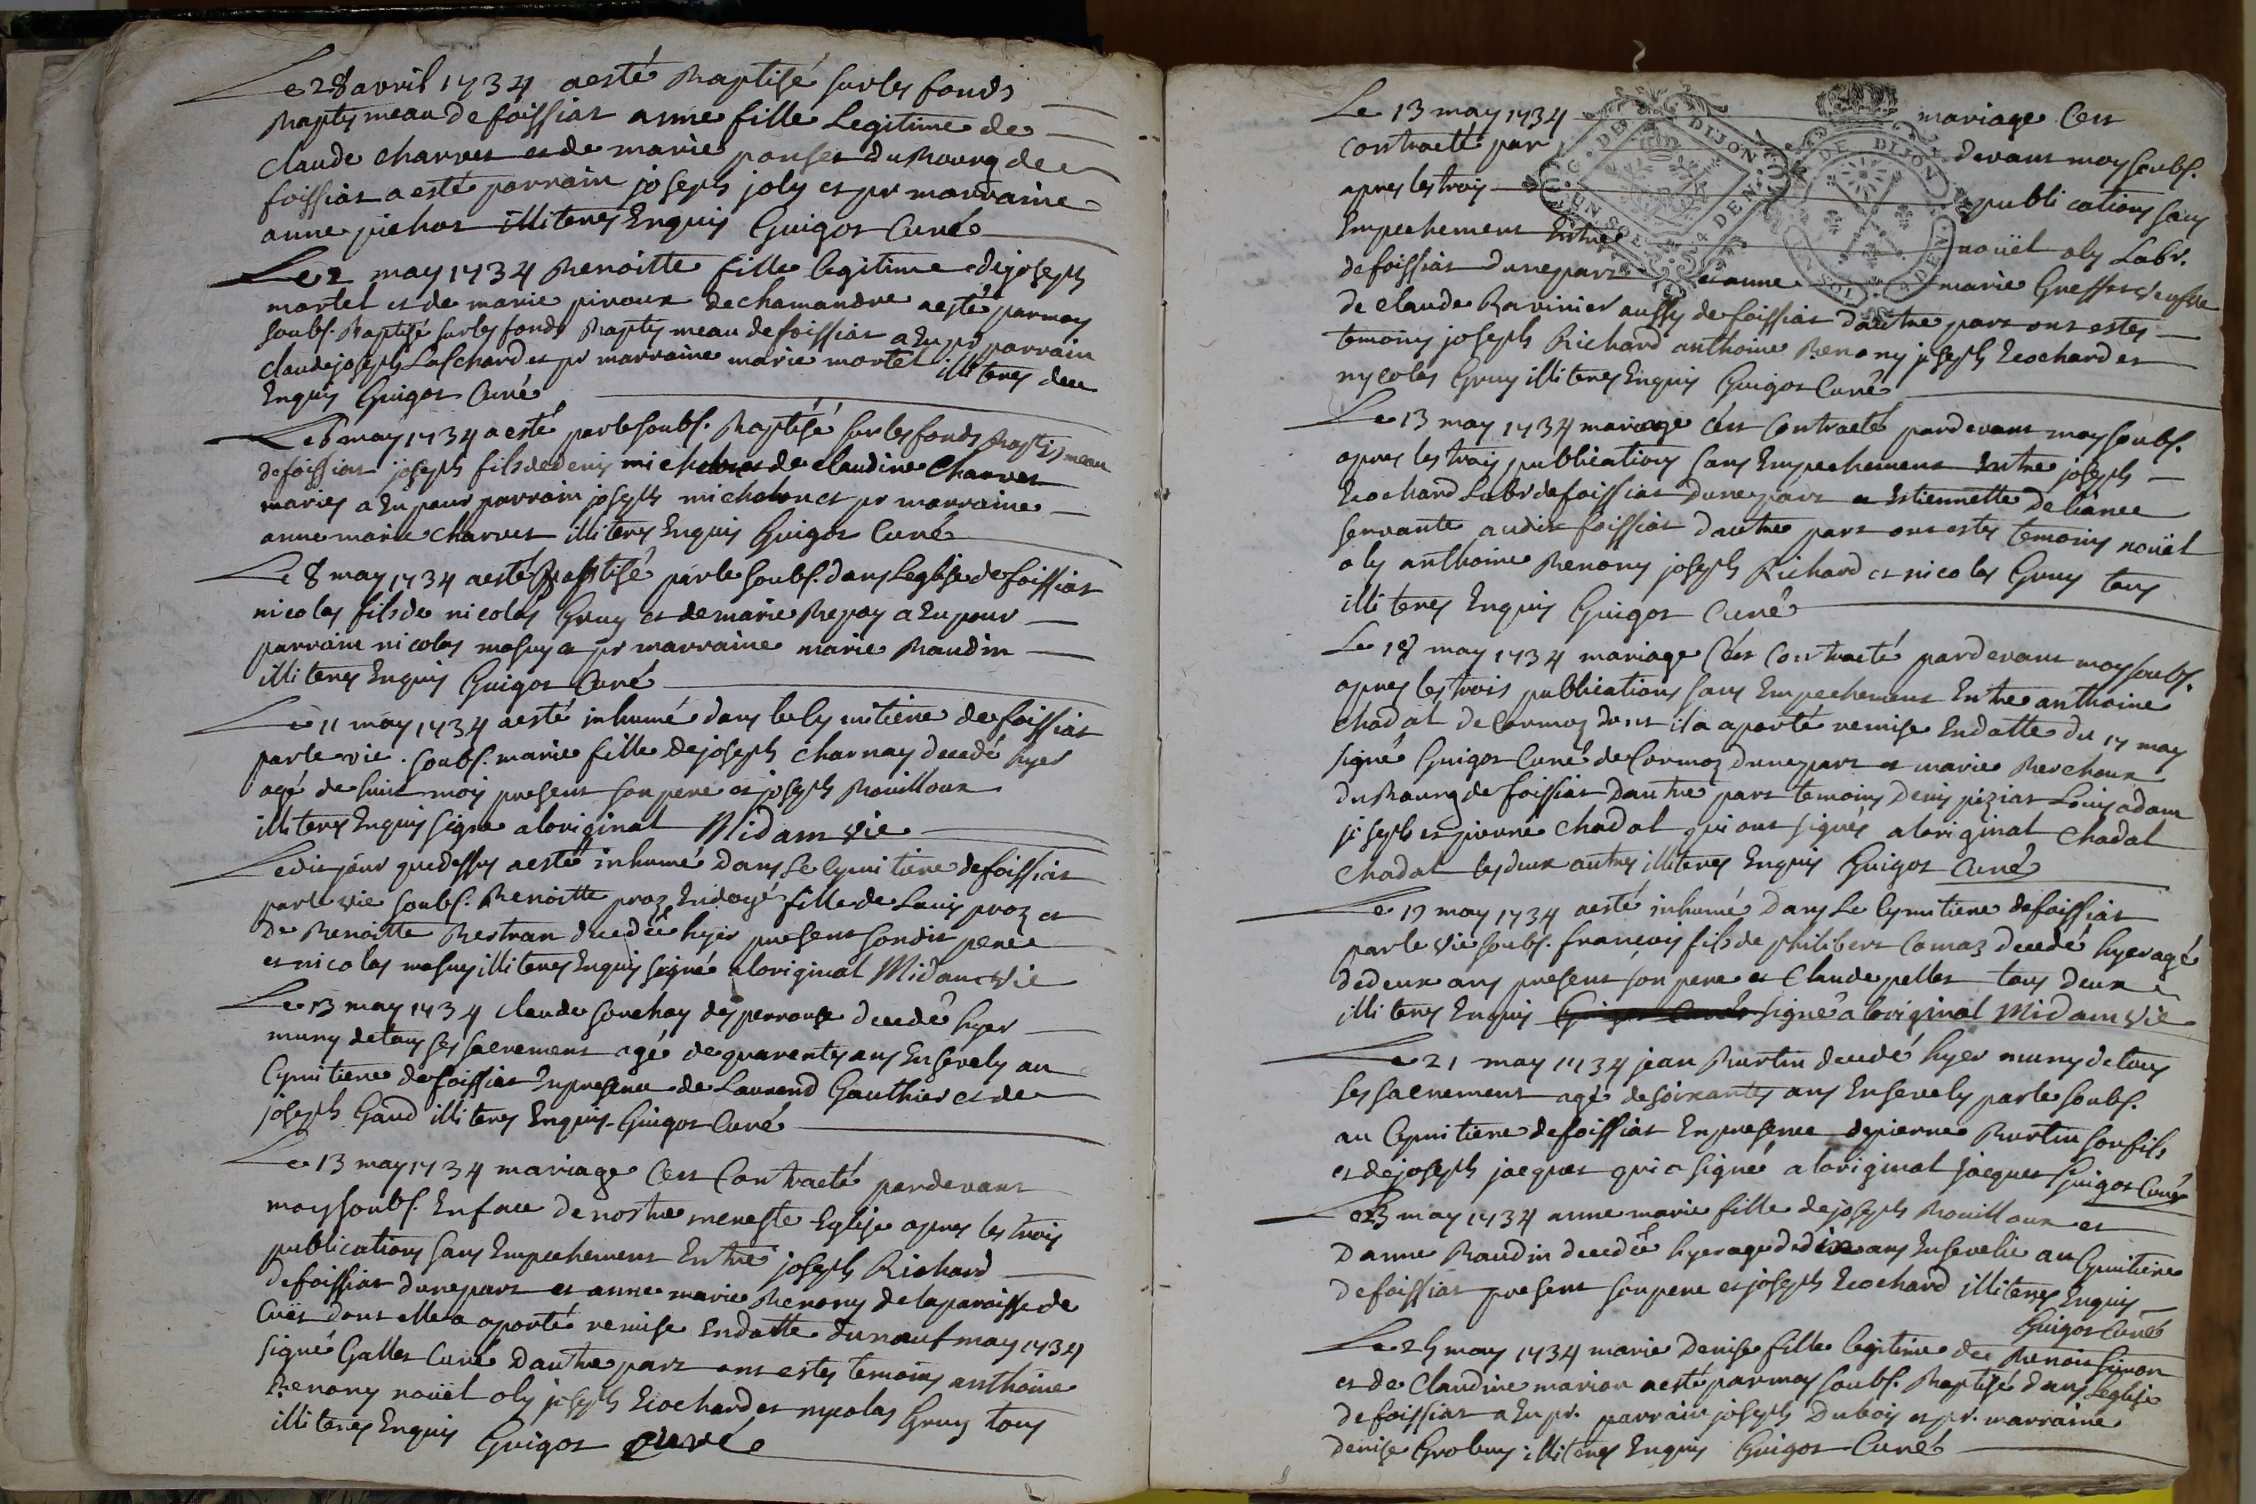 Le 28 avril 1734 a esté Baptisé sur les fonds
Baptismeau de foissiat anne fille Legitime de
Claude Charvet et de marie ponset du Bourg de
foissiat a esté parrain joseph joly et pr marraine
anne pichot illiteres Enquis Guigot Curé
Le 2 may 1734 Benoitte fille legitime de joseph
mortel et de marie piroux de chamandre a esté par moy
soubs. Baptisé sur les fonds Baptismeau de foissiat a Eu pr parrain
claude joseph Laschard et pr marraine marie mortel illiteres deu
Enquis Guigot Curé
Le 6 may 1734 a esté par le soubs. Baptisé sur les fonds Baptismeau
de foissiat joseph fils de denis michelon et de claudine Charvet
maries a Eu pour parrain joseph michelon et pr marraine
anne marie charvet illiteres Enquis Guigot Curé
Le 8 may 1734 a esté Baptisé par le soubs. dans Leglise de foissiat
nicolas fils de nicolas Gruy et de marie Repay a Eu pour
parrain nicolas mosny a pr marraine marie Baudin
illiteres Enquis Guigot Curé
Le 11 may 1734 a esté inhumé dans le Cymitiere de foissiat
par le vic. soubs. marie fille de joseph charnay decedé hyer
agé de huit mois present son pere et joseph Bouilloux
illiteres Enquis signe a loriginal Midam vic
Ledit jour que dessus a esté inhumé Dans Le Cymitiere de foissiat
par le vic soubs. Benoitte proz Endoyé fille de Louis proz et
De Benoitte Bertran decedée hyer present sondit pere
et nicolas mosny illiteres Enquis signé a loriginal Midam Vic
Le 13 may 1734 claude souchay des perrouse decedé hyer
muny de tous ses sacrement agé de quarentes ans Ensevely au
Cymitiere de foissiat En presence de Laurend Gauthier et de
joseph Gaud illiteres Enquis Guigot Curé
Le 13 may 1734 mariage Cest Contracté pardevant
moy soubs. En face de nostre mere ste Eglise apres les trois
publications sans Empechement Entre joseph Richard
de foissiat dune part et anne marie Renony de la paroisse de
Cuet dont elle a aporté remise En datte du neuf may 1734
signé Gallet Curé Dautre part ont estes temoins anthoine
Renony noüel oly joseph Ecochard et nycolas Gruy tous
illiteres Enquis Guigot Curé
Le 13 may 1734 mariage Cest
contracté par devant moy soubs.
apres les trois publications sans
Empechement Entre noüel oly Labr.
de foissiat dune part et anne marie Greffet veufve
de claude Ravinier aussy de foissiat dautre part ont estes
temoins joseph Richard anthoine Renony joseph Ecochard et
nycolas Gruy illiteres Enquis Guigot Curé
Le 13 may 1734 mariage Cest Contracté pardevant moy soubs.
apres les trois publications sans Empechement Entre joseph
Ecochard Labr de foissiat Dune part et Estiennette Deliance
servante audit foissiat dautre part ont estes temoins noüel
oly anthoine Renony joseph Richard et nicolas Gruy tous
illiteres Enquis Guigot Curé
Le 18 may 1734 mariage Cest Contracté pardevant moy soubs.
apres les trois publications sans Empechement Entre anthoine
Chadal de Cormoz dont il a aporté remise En datte du 17 may
signé Guigot Curé de Cormoz Dune part et marie Berchoux
du Bourg de foissiat Dautre part temoins Denis piziat Louis adam
joseph et pierre Chadal qui ont signés a loriginal Chadal
Chadal les deux autres illiteres Enquis Guigot Curé
Le 19 may 1734 a esté inhumé Dans Le Cymitiere de foissiat
par le Vic soubs. francois fils de philibert Comaz decedé hyer agé
de deux ans present son pere et Claude pellet tous deux
illiteres Enquis signé a loriginal Midam Vic
Le 21 may 1734 jean Burtin decedé hyer muny de tous
ses sacrement agé de soixantes ans Ensevely par le soubs.
au Cymitiere de foissiat En presence de pierre Burtin son fils
et de joseph jacquet qui a signé a loriginal Jacquet Guigot Curé
Le 23 may 1734 anne marie fille de joseph Bouilloux et
Danne Baudin decedée hyer agé de dix ans Ensevelie au Cymitiere
De foissiat present son pere et joseph Ecochard illiteres Enquis
Guigot Curé
Le 25 may 1734 marie Denise fille legitime de Benoit Simon
et de Claudine marion a esté par moy soubs. Baptisé dans Leglise
de foissiat a Eu pr. parrain joseph Dubois et pr. marraine
denise Grobuy illiteres Enquis Guigot Curé